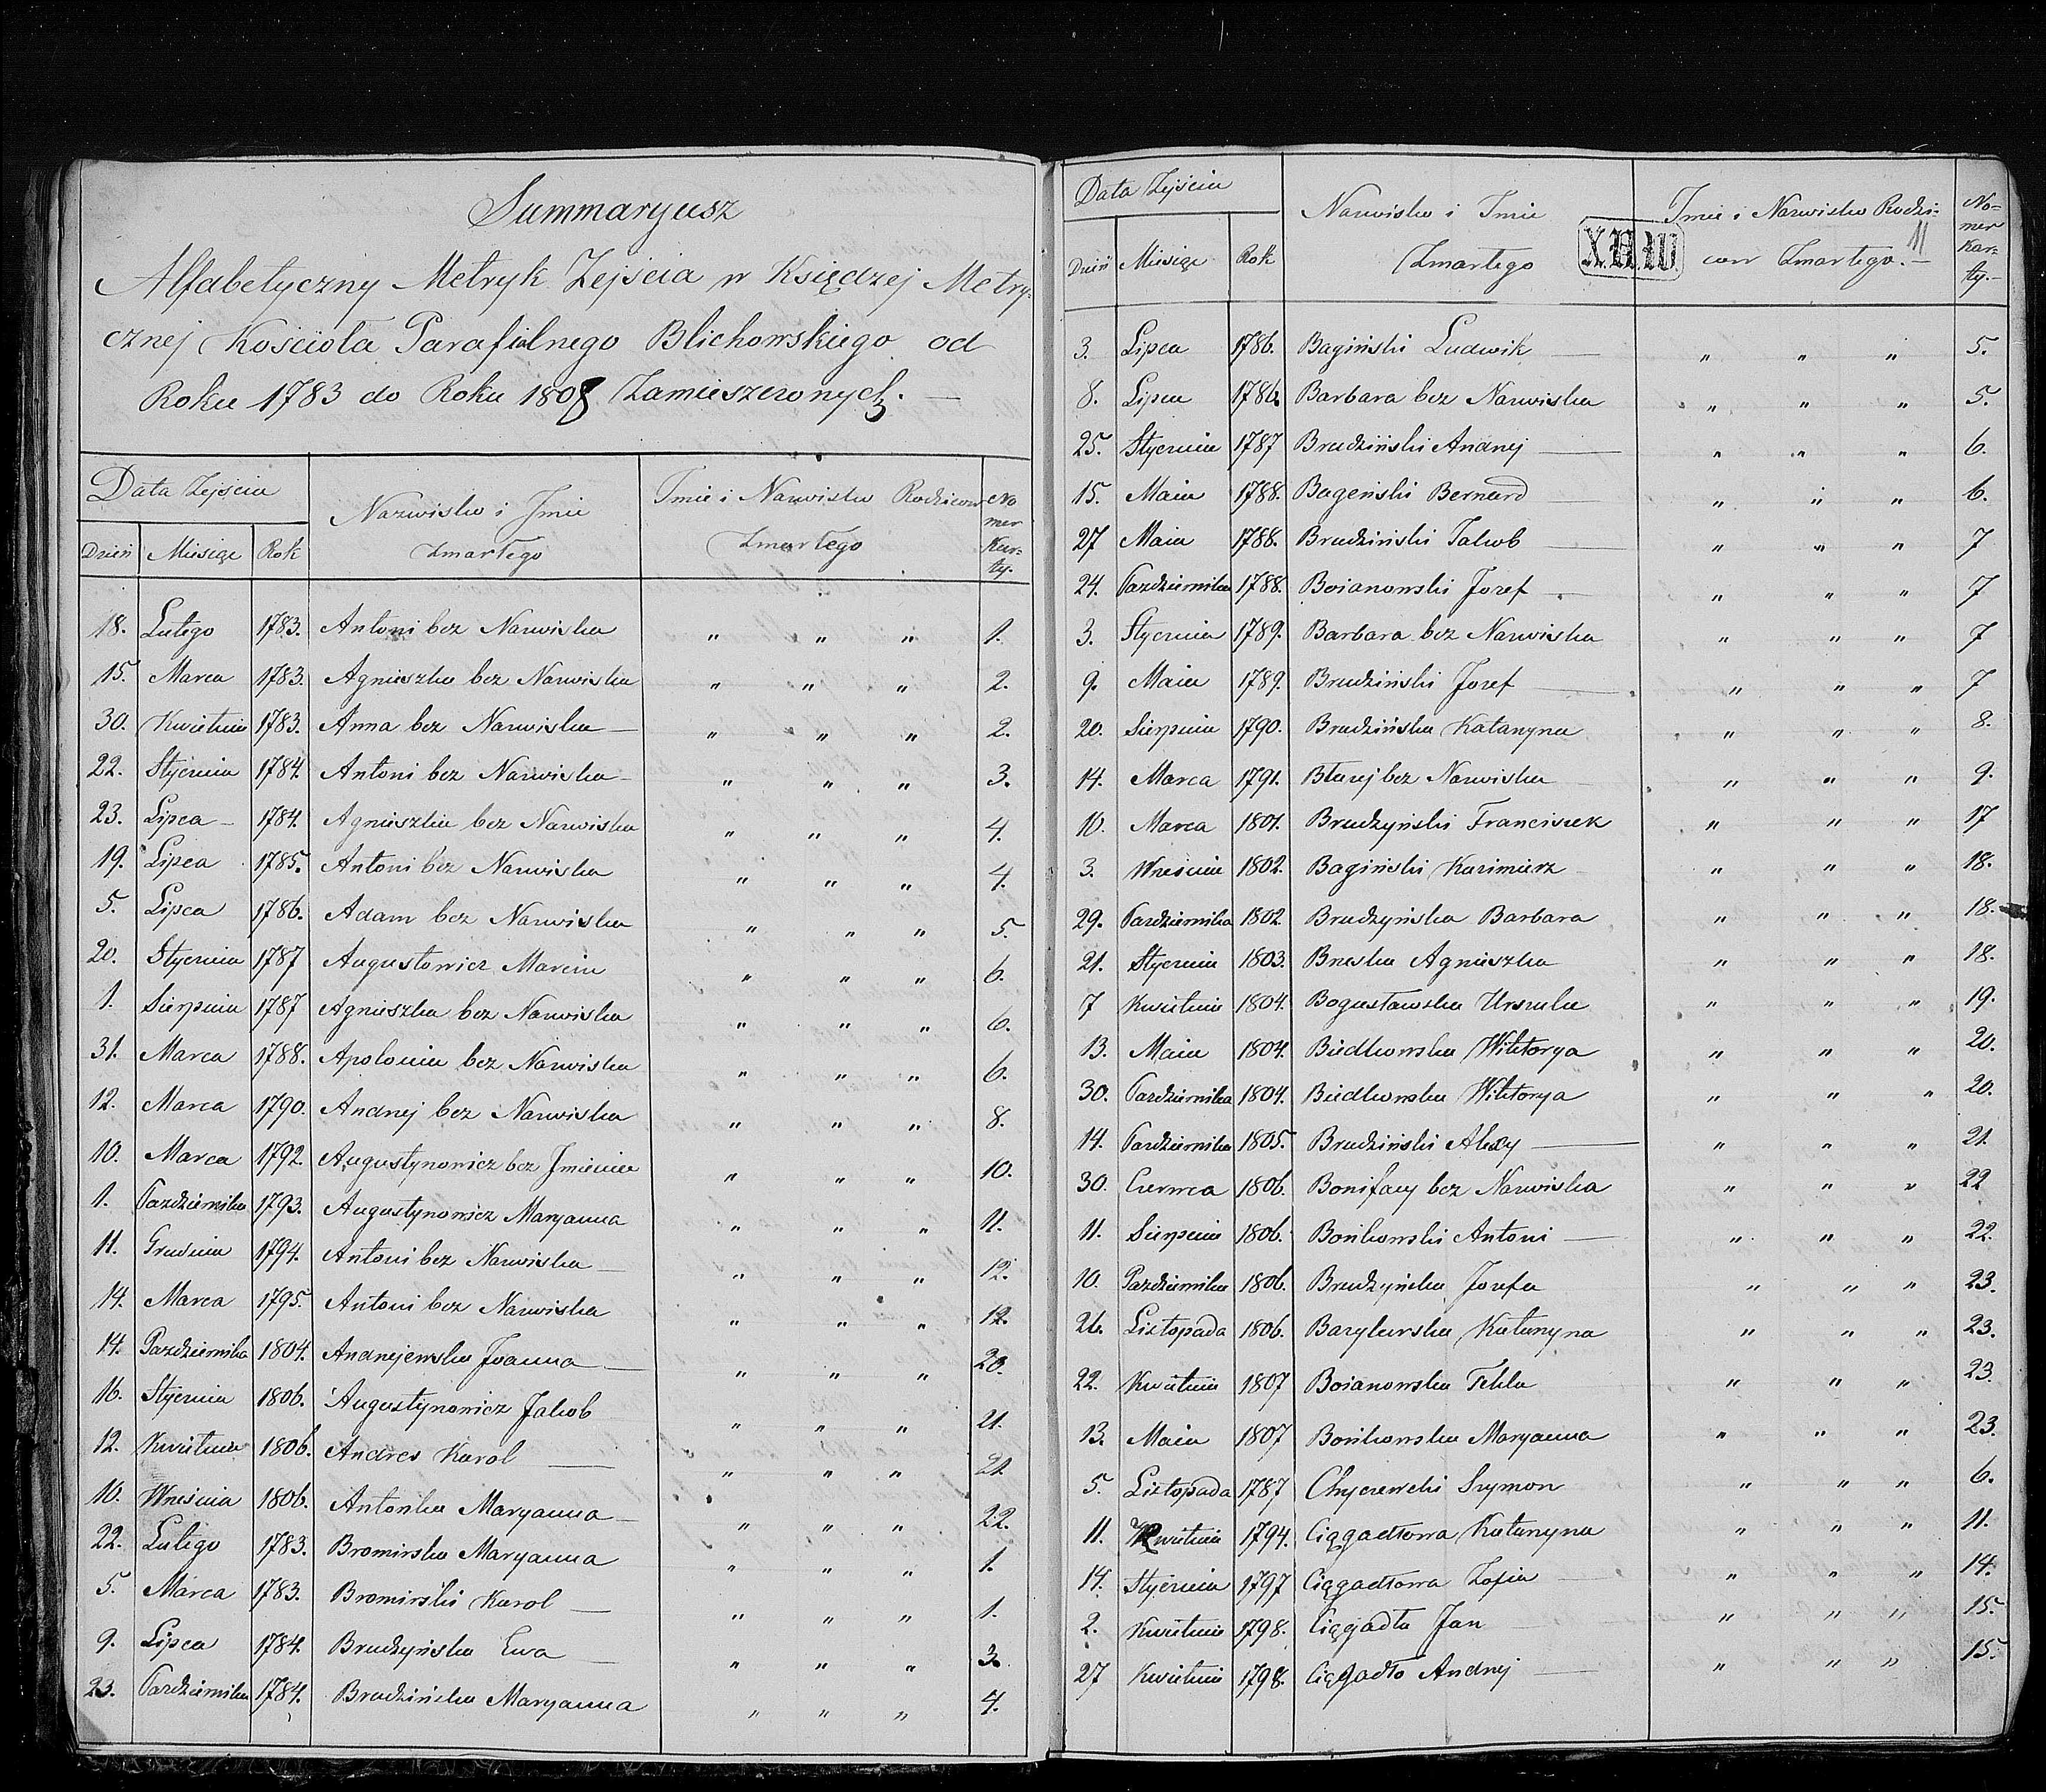 Summaryusz
Alfabetyczny Metryk Zejścia w Księdzej Metry-
cznej Kościoła Parafialnego Blichowskiego od
Roku 1783 do Roku 1808 Zamieszczonych. —
Data Zejścia
Nazwisko i Jmie
Zmarłego
Jmie i Nazwisko Rodziców
Zmarłego
No
mer
Kar-
ty.
Dzień Miesiąc Rok
18. Lutego 1783. Antoni bez Nazwiska " " " 1.
15. Marca 1783. Agnieszka bez Nazwiska " " " 2.
30. Kwietnia 1783. Anna bez Nazwiska — " " " 2.
22. Stycznia 1784. Antoni bez Nazwiska — " " " 3.
23. Lipca — 1784. Agnieszka bez Nazwiska " " " 4.
19. Lipca 1785. Antoni bez Nazwiska " " " 4.
5. Lipca 1786. Adam bez Nazwiska " " " 5.
20. Stycznia 1787 Augustowicz Marcin " " " 6.
1. Sierpnia 1787 Agnieszka bez Nazwiska " " " 6.
31. Marca 1788. Apolonia bez Nazwiska " " " 6.
12. Marca 1790. Andrzej bez Nazwiska " " " 8.
10. Marca 1792. Augustynowicz bez Jmienia " " " 10.
1. Październiku 1793. Augustynowicz Maryanna " " " 11.
11. Grudnia 1794. Antoni bez Nazwiska — " " " 12.
14. Marca 1795. Antoni bez Nazwiska " " " 12.
14. Października 1804. Andrzejewska Joanna — " " " 20.
16. Stycznia 1806. Augustynowicz Jakob " " " 21.
12. Kwietnia 1806. Andres Karol — " " " 21
10. Września 1806. Antońka Maryanna — " " " 22.
22. Lutego 1783. Bromirska Maryanna " " " 1.
5. Marca 1783. Bromirski Karol — " " " 1.
9. Lipca 1784. Brudzyńska Ewa — " " " 3.
23. Października 1784. Brudzińska Maryanna " " " 4.
Data Zejścia
Nazwisko i Jmie
Zmarłego
X.H.W
Jmie i Nazwisko Rodzi-
ców Zmarłego. —
11
No-
mer
Kar-
ty. —
Dzień Miesiąc Rok
3. Lipca 1786. Bagiński Ludwik — " " " 5.
8. Lipca 1786. Barbara bez Nazwiska " " " 5.
25. Stycznia 1787 Brudziński Andrzej — " " " 6.
15. Maia 1788. Bageński Bernard — " " " 6.
27 Maia 1788. Brudziński Jakob — " " " 7
24. Października 1788. Boianowski Jozef " " " 7
3. Stycznia 1789. Barbara bez Nazwiska " " " 7
9. Maia 1789. Brudziński Jozef — " " " 7
20. Sierpnia 1790. Brudzińska Katarzyna " " " 8.
14. Marca 1791. Błażej bez Nazwiska " " " 9.
10. Marca 1801. Brudzyński Franciszek " " " 17
3. Wrześnie 1802. Bagiński Kazimierz " " " 18.
29. Października 1802. Brudzyńska Barbara " " " 18.
21. Stycznia 1803. Brzeska Agnieszka " " " 18.
7 Kwietnia 1804. Bogusławska Urszula " " " 19.
13. Maia 1804. Biedkowska Wiktorya " " " 20.
30. Października 1804. Biedkowska Wiktorya " " " 20.
14. Października 1805. Brudziński Alexy — " " " 21
30. Czerwca 1806. Bonifacy bez Nazwiska " " " 22
11. Sierpnia 1806. Bońkowski Antoni — " " " 22.
10. Października 1806. Brudzyńska Jozefa " " " 23.
26. Listopada 1806. Katarzyna " " " 23.
22. Kwietnia 1807 Boianowska Tekla " " " 23.
13. Maia 1807 Bońkowska Maryanna " " " 23.
5. Listopada 1787 Chyczewski Szymon " " " 6.
11. Kwietnia 1794. Ciągadłowa Katarzyna " " " 11.
14. Stycznia 1797 Ciągadłowa Zofia — " " " 14.
2. Kwietnia 1798. Ciągadła Jan — " " " 15.
27 Kwietnia 1798. Ciągadło Andrzej — " " " 15.